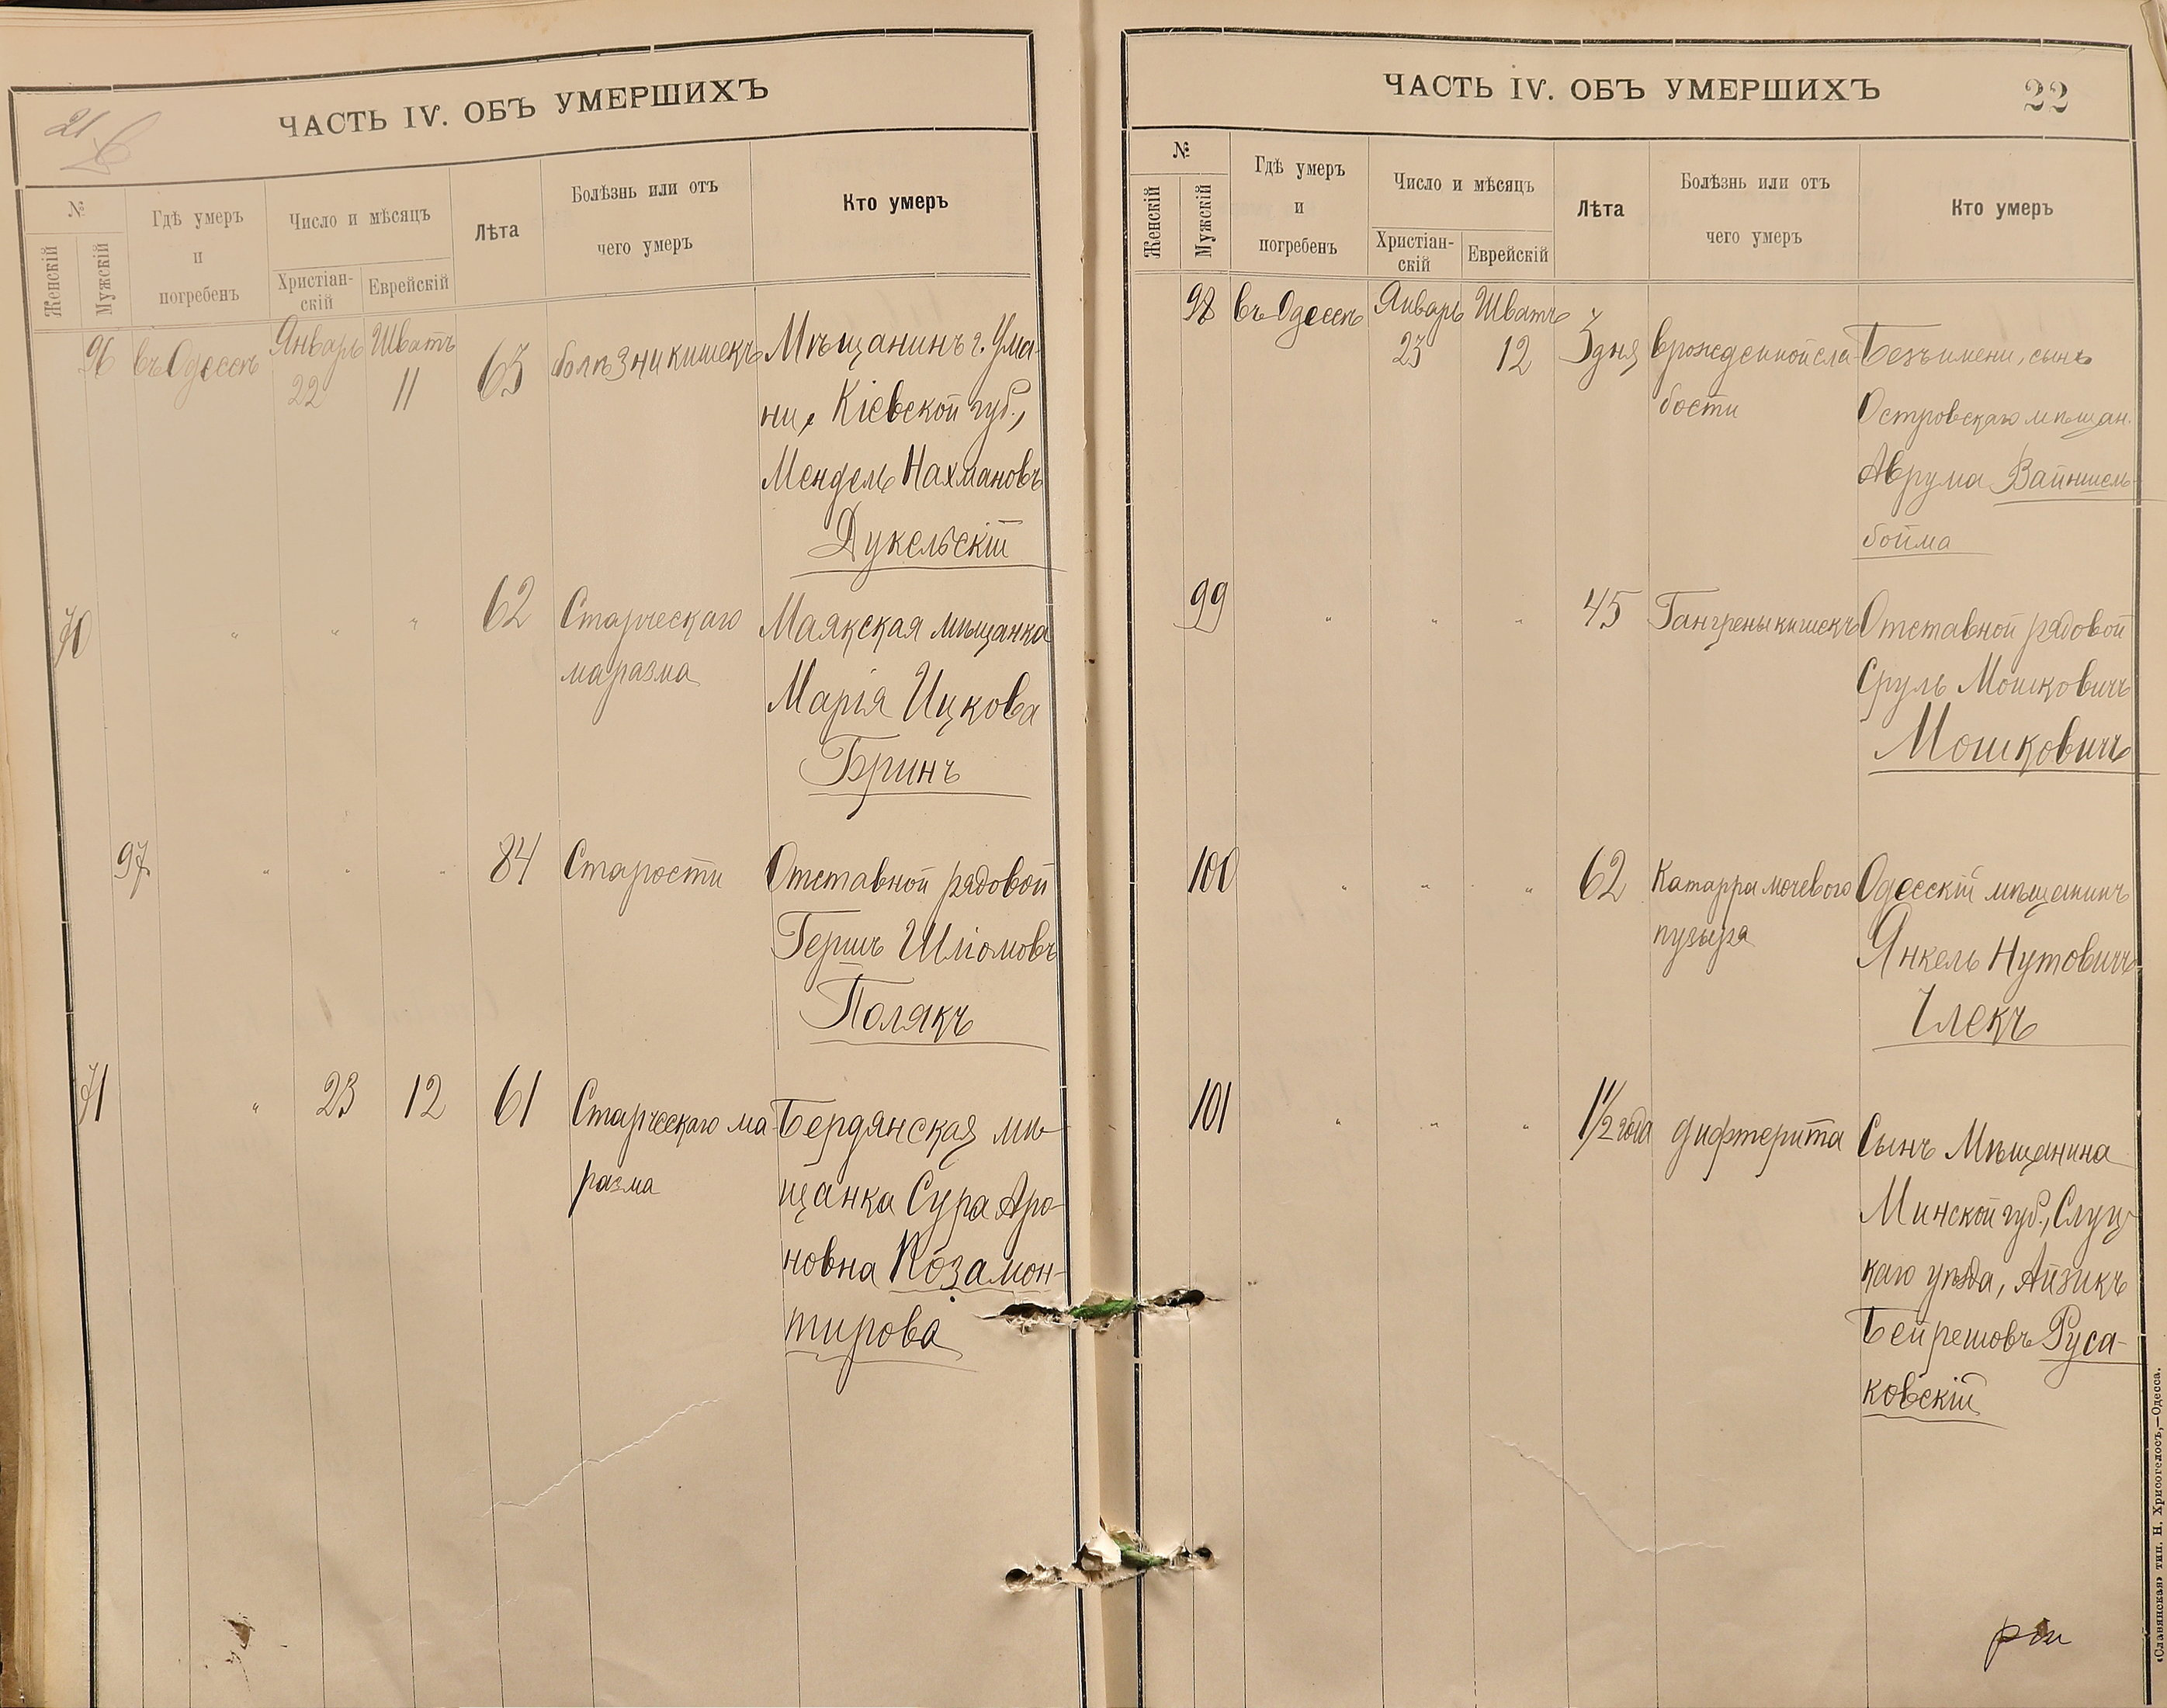 21
ЧАСТЬ IV. ОБЪ УМЕРШИХЪ
№
Женскій
Мужскій
Гдѣ умеръ
и
погребенъ
Число и мѣсяцъ
Христіан-
скій
Еврейскій
Лѣта
Болѣзнь или отъ
чего умеръ
Кто умеръ
96 въ Одессѣ Январь Шватъ 65 болѣзни кишекъ Мѣщанинъ г. Ума-
22 11
ни, Кіевской губ.,
Мендель Нахмановъ
Дукельскій
70 " " " 62 Старческаго Маякская мѣщанка
маразма
Марія Ицкова
Бринъ
97 " " " 84 Старости Отставной рядовой
Гершъ Шліомовъ
Полякъ
71 " 23 12 61 Старческаго ма- Бердянская мѣ-
разма
щанка Сура Аро-
новна Розамон-
тирова
ЧАСТЬ IV. ОБЪ УМЕРШИХЪ
22
№
Женскій
Мужскій
Гдѣ умеръ
и
погребенъ
Число и мѣсяцъ
Христіан-
скій
Еврейскій
Лѣта
Болѣзнь или отъ
чего умеръ
Кто умеръ
98 въ Одессѣ Январь Шватъ 3 дня врожденной сла- Безъ имени, сынъ
23 12
бости
Островскаго мѣщан.
Аврума Вайншель-
бойма
99 " " " 45 Гангрены кишекъ Отставной рядовой
Сруль Мошковичъ
Мошковичъ
100 " " " 62 Катарра мочевого Одесскій мѣщанинъ
пузыря
Янкель Нутовичъ
Члекъ
101 " " " 1 1/2 года дифтерита Сынъ Мѣщанина
Минской губ., Слуц-
каго уѣзда, Айзикъ
Бейрешовъ Руса-
ковскій
«Славянская» тип. Н. Хрисогелосъ,—Одесса.